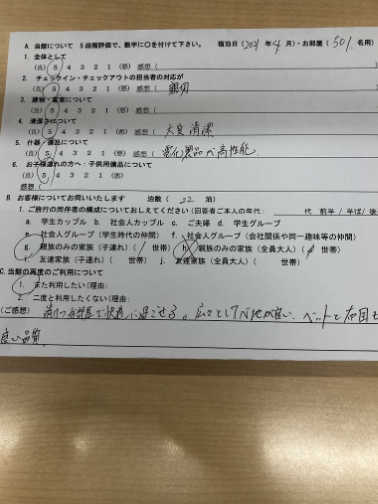 A. 当館について 5段階評価で、数字に○を付けて下さい。 宿泊日(2021年4月)・お部屋(501 名用)
1. 全体として
(良) 5 4 3 2 1 (悪) 感想(
2. チェックイン・チェックアウトの担当者の対応が
(良) 5 4 3 2 1 (悪) 感想( 親切
3. 建物・客室について
(良) 5 4 3 2 1 (悪) 感想(
4. 清潔さについて
(良) 5 4 3 2 1 (悪) 感想( 大変清潔
5. 什器/備品について
(良) 5 4 3 2 1 (悪) 感想( 電化製品が高性能
6. お子様連れの方へ:子供用備品について
(良) 5 4 3 2 1 (悪)
感想(
B. お客様についてお問いいたします 泊数( 22 泊)
1. ご旅行の同伴者の構成についておしえてください(回答者ご本人の年代: 代 前半/半ば/後
a. 学生カップル b. 社会人カップル c. ご夫婦 d. 学生グループ
e. 社会人グループ(学生時代の仲間) f. 社会人グループ(会社関係や同一趣味等の仲間)
g. 親族のみの家族(子連れ)( 1 世帯) h. 親族のみの家族(全員大人)( 世帯)
i. 友達家族(子連れ)( 世帯) j. 友達家族(全員大人)( 世帯)
C. 当館の再度のご利用について
1. また利用したい(理由:
2. 二度と利用したくない(理由:
(ご感想) 快適に過ごせる。広々として が良い、ベットと布団も
良い品質。